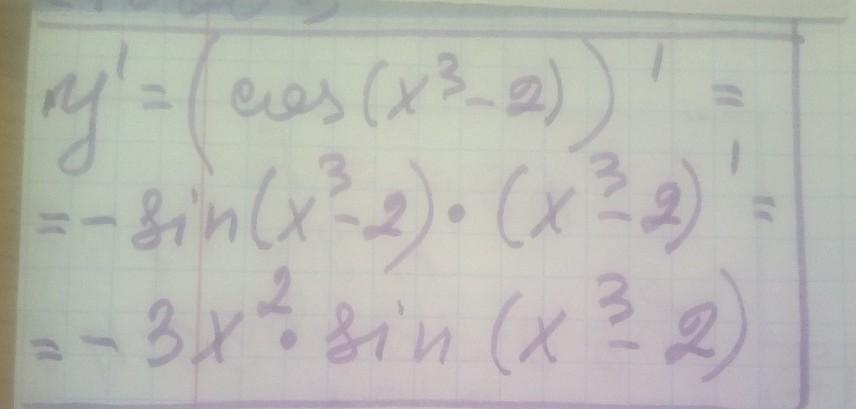 y' = (cos(x³-2))' =
= - sin(x³-2) · (x³-2)' =
= - 3x² · sin(x³-2)